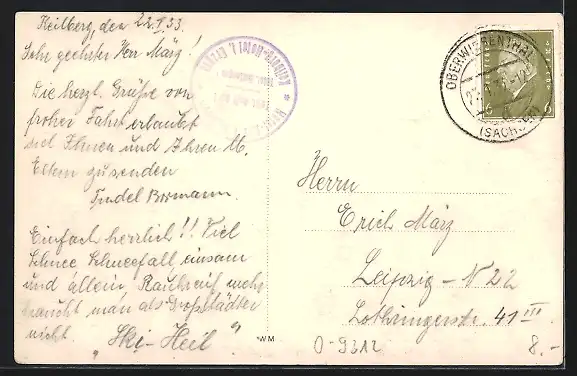 Keilberg, den 22.I.33.
Sehr geehrter Herr März!
Die herzl. Grüße von
froher Fahrt erlaubt
sich Ihnen und Ihren lb.
Eltern zu senden
Bormann.
Einfach herrlich!! Viel
Schnee Schneefall einsam
und allein Rauhreif mehr
braucht man als Großstädter
nicht. "Ski-Heil"
OBERWIESENTHAL
(SACHS.)
6
Herrn
Erich März
Leipzig - N 22
Lothringerstr. 41 III
WM
O-9312
8.-